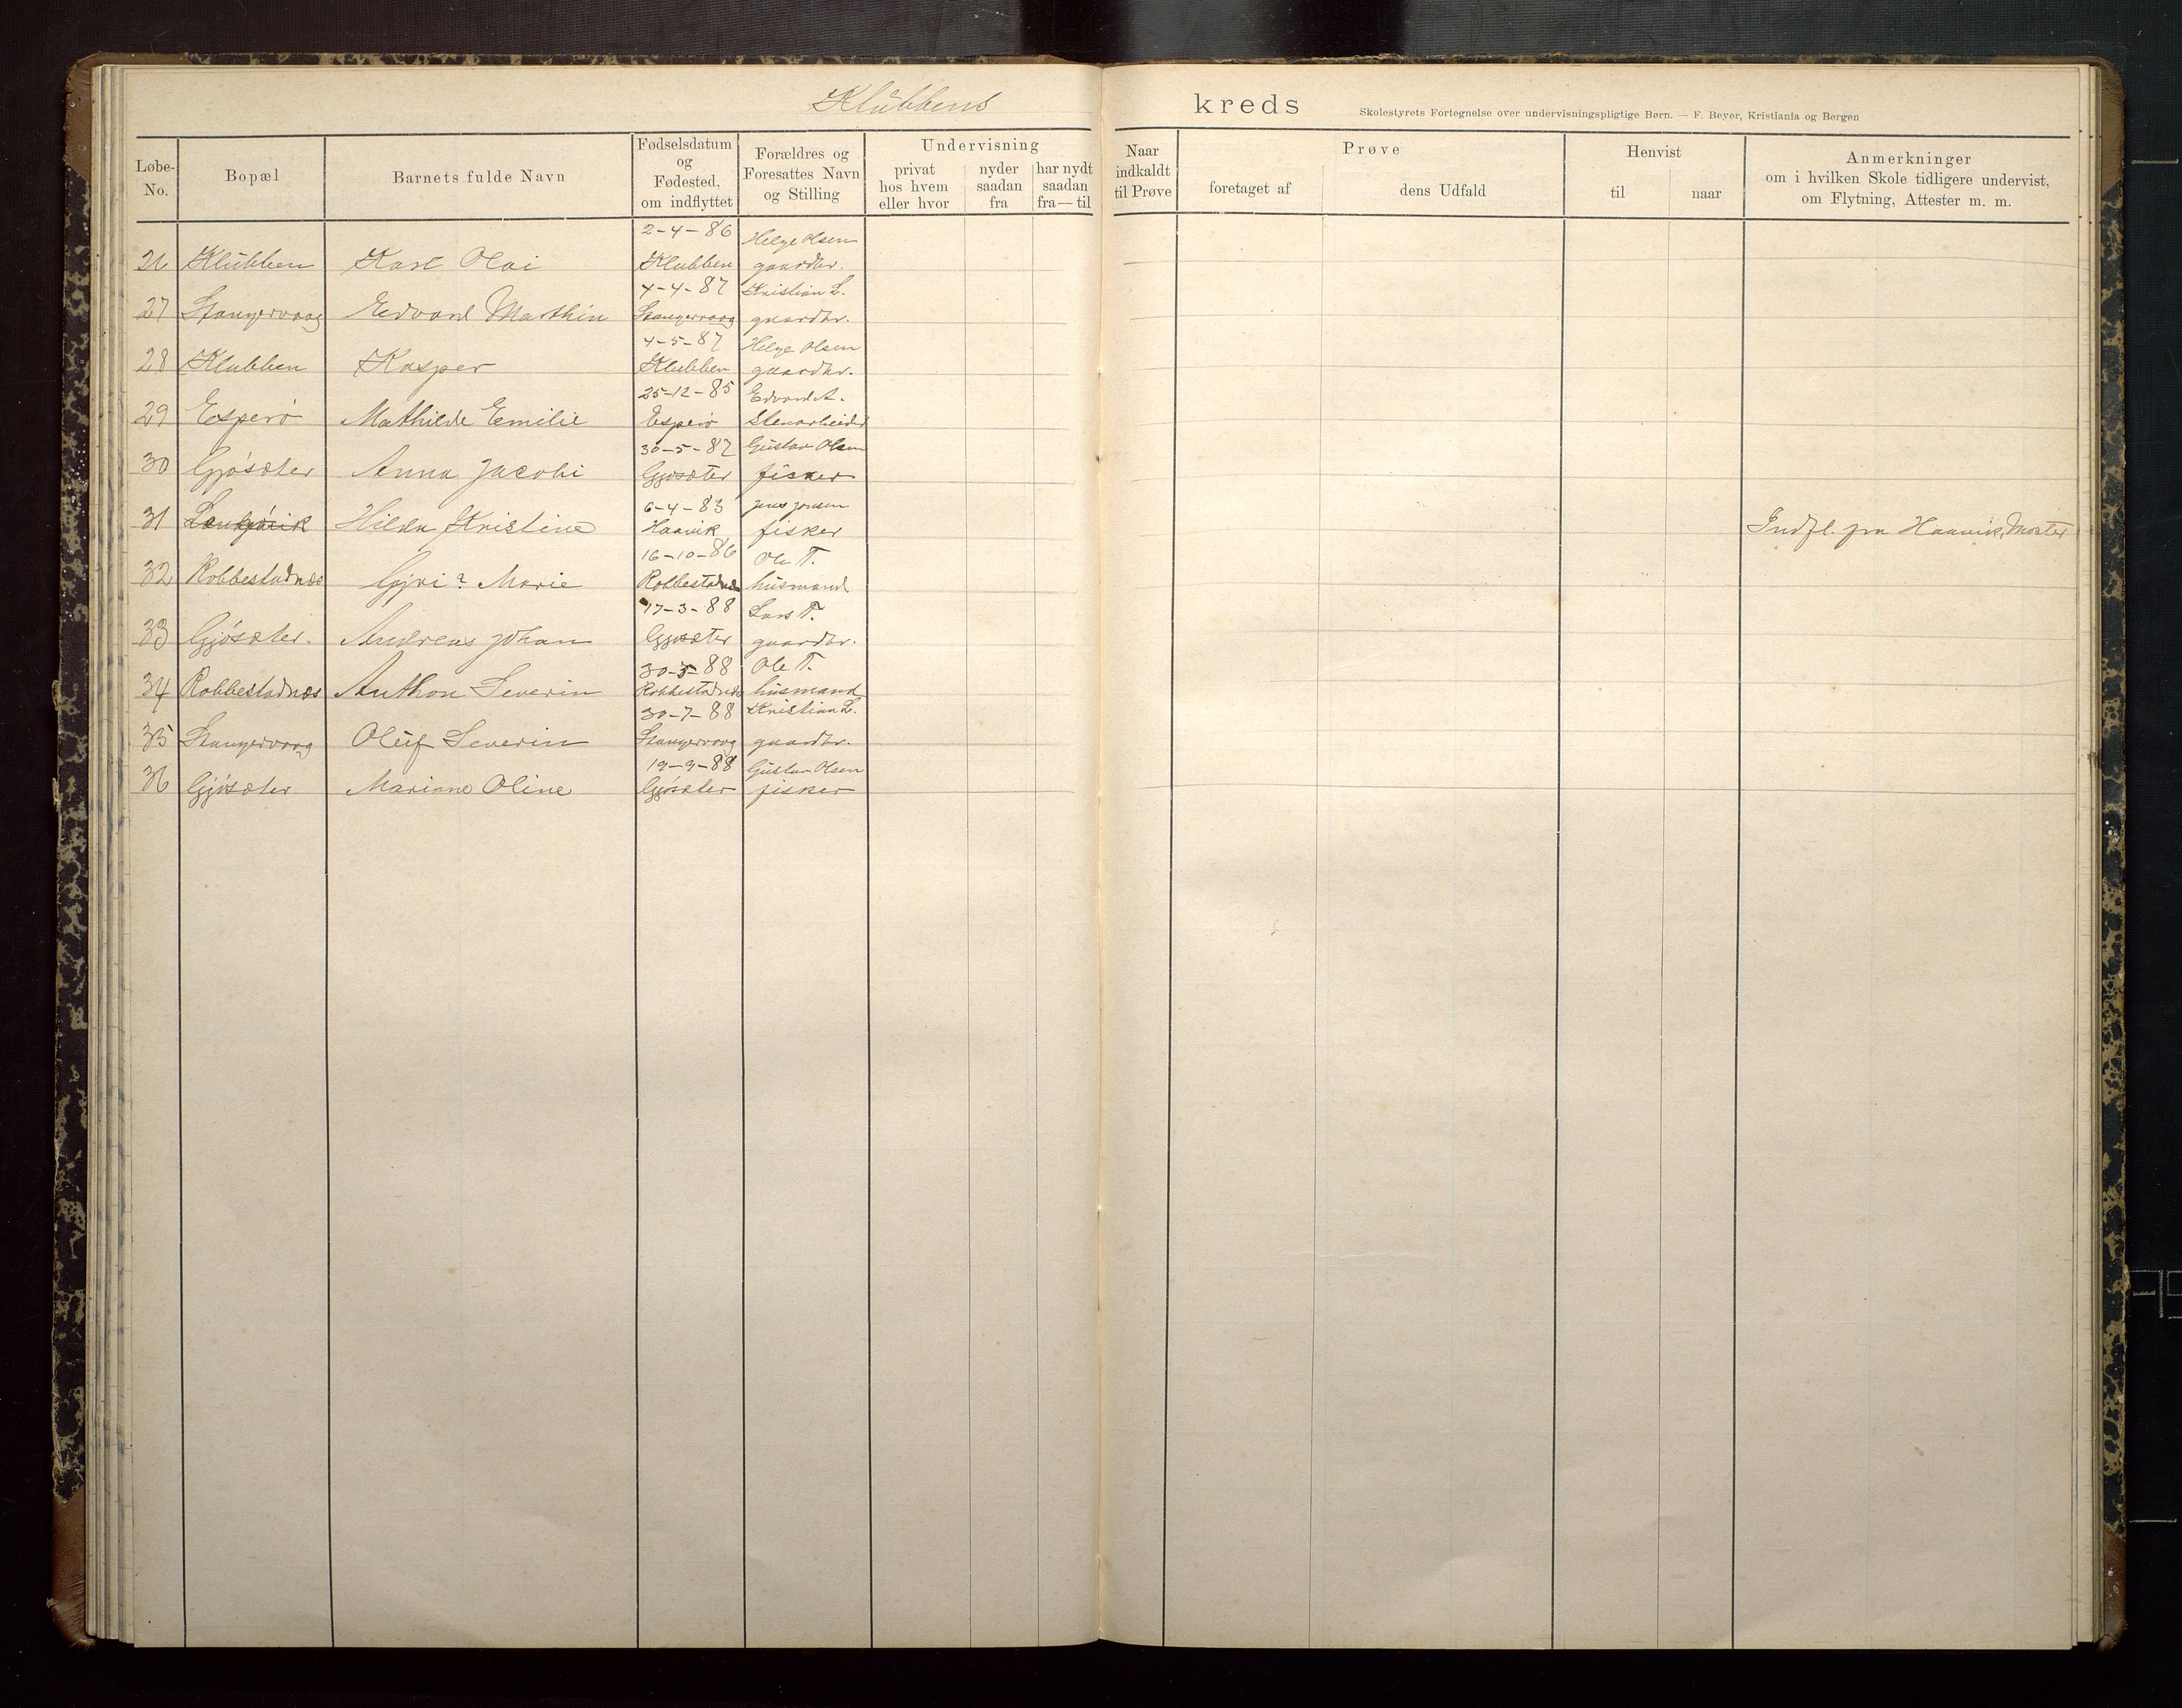 Klubbens kreds
Skolestyrets Fortegnelse over undervisningspligtige Børn. — F. Beyer, Kristiania og Bergen
Løbe-No. Bopæl Barnets fulde Navn Fødselsdatum og Fødested, om indflyttet Forældres og Foresattes Navn og Stilling Undervisning privat hos hvem eller hvor nyder saadan fra har nydt saadan fra—til Naar indkaldt til Prøve Prøve foretaget af dens Udfald Henvist til naar Anmerkninger om i hvilken Skole tidligere undervist, om Flytning, Attester m. m.
2-4-86 Helge Olsen
26 Klubben Karl Olai Klubben gaardbr.
4-4-87 Kristian L.
27 Stangervaag Edvard Marthin Stangervaag gaardbr.
4-5-87 Helge Olsen
28 Klubben Kasper Klubben gaardbr.
25-12-85 Edvard A.
29 Esperø Mathilde Emilie Esperø Stenarbeider
30-5-87 Gustav Olsen
30 Gjøsæter Anna Jacobi Gjøsæter fisker
6-4-83 Jens Jensen
31 Hilda Kristine Haavik fisker Indfl. fra Haavik, Moster
16-10-86 Ole T.
32 Robbestadnæs Gjri? Marie Robbestadnæs husmand
17-3-88 Lars T.
33 Gjøsæter. Andreas Johan Gjøsæter gaardbr.
30-3-88 Ole T.
34 Robbestadnæs Anthon Severin Robbestadnæs husmand
30-7-88 Kristian L.
35 Stangervaag Oluf Severin Stangervaag gaardbr.
19-9-88 Gustav Olsen
36 Gjøsæter Mariane Oline Gjøsæter fisker